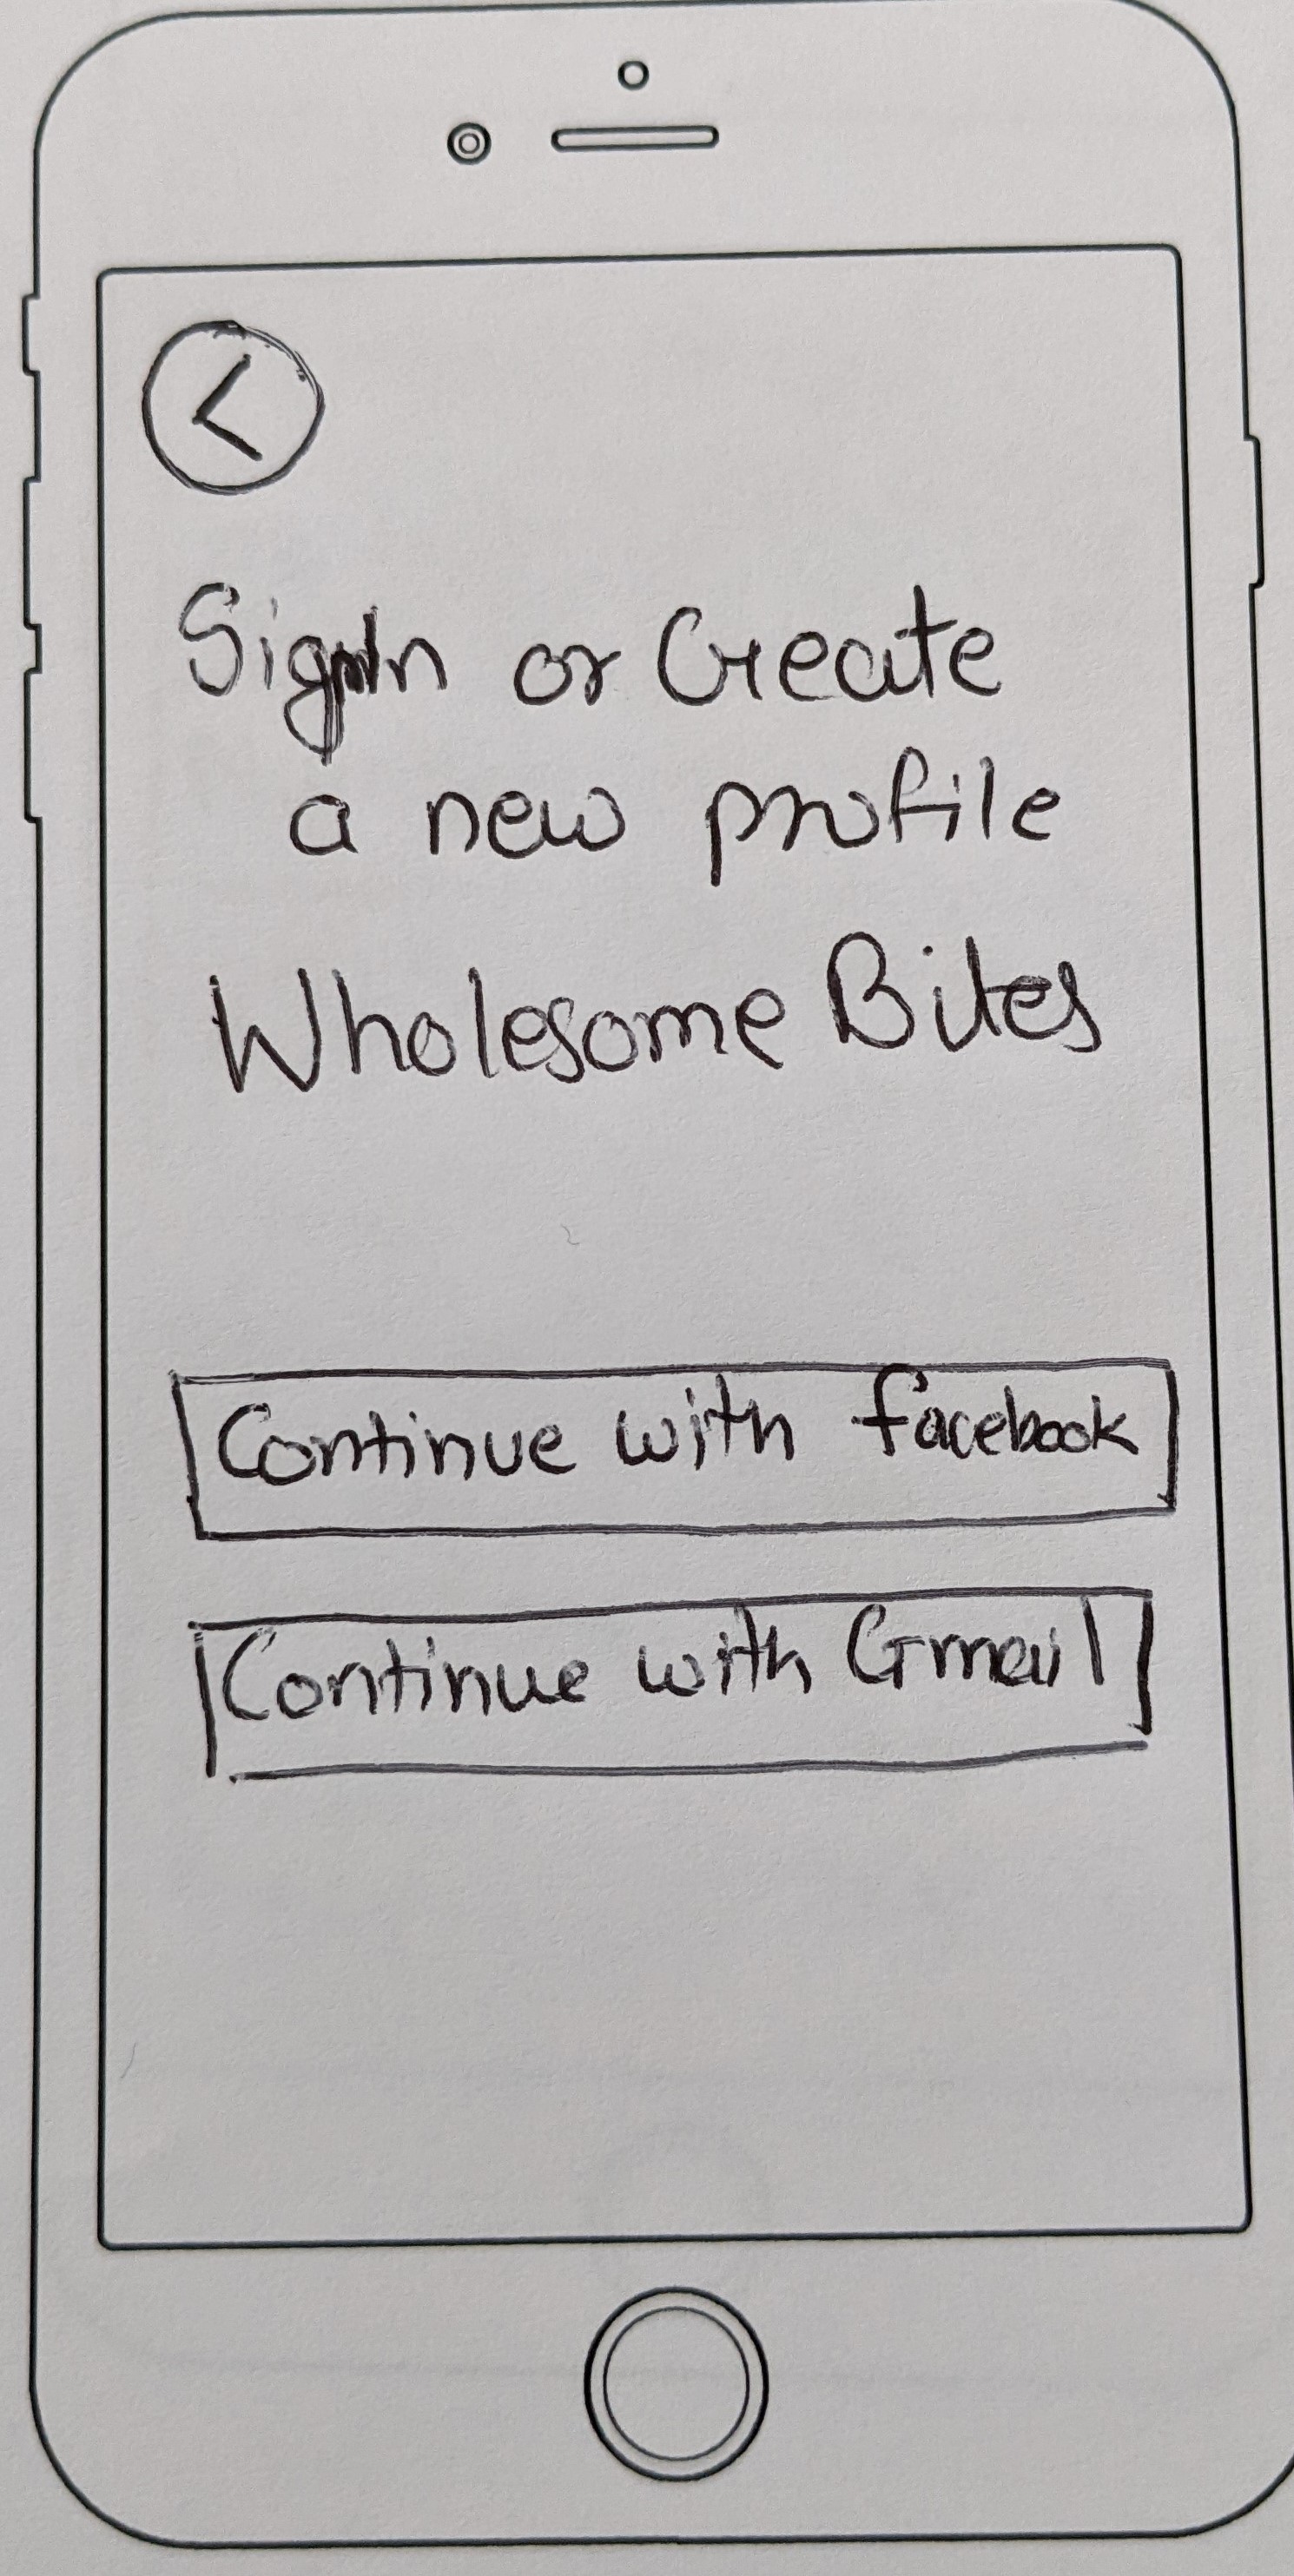 SignIn or Create
a new profile
Wholesome Bites
Continue with facebook
Continue with Gmail